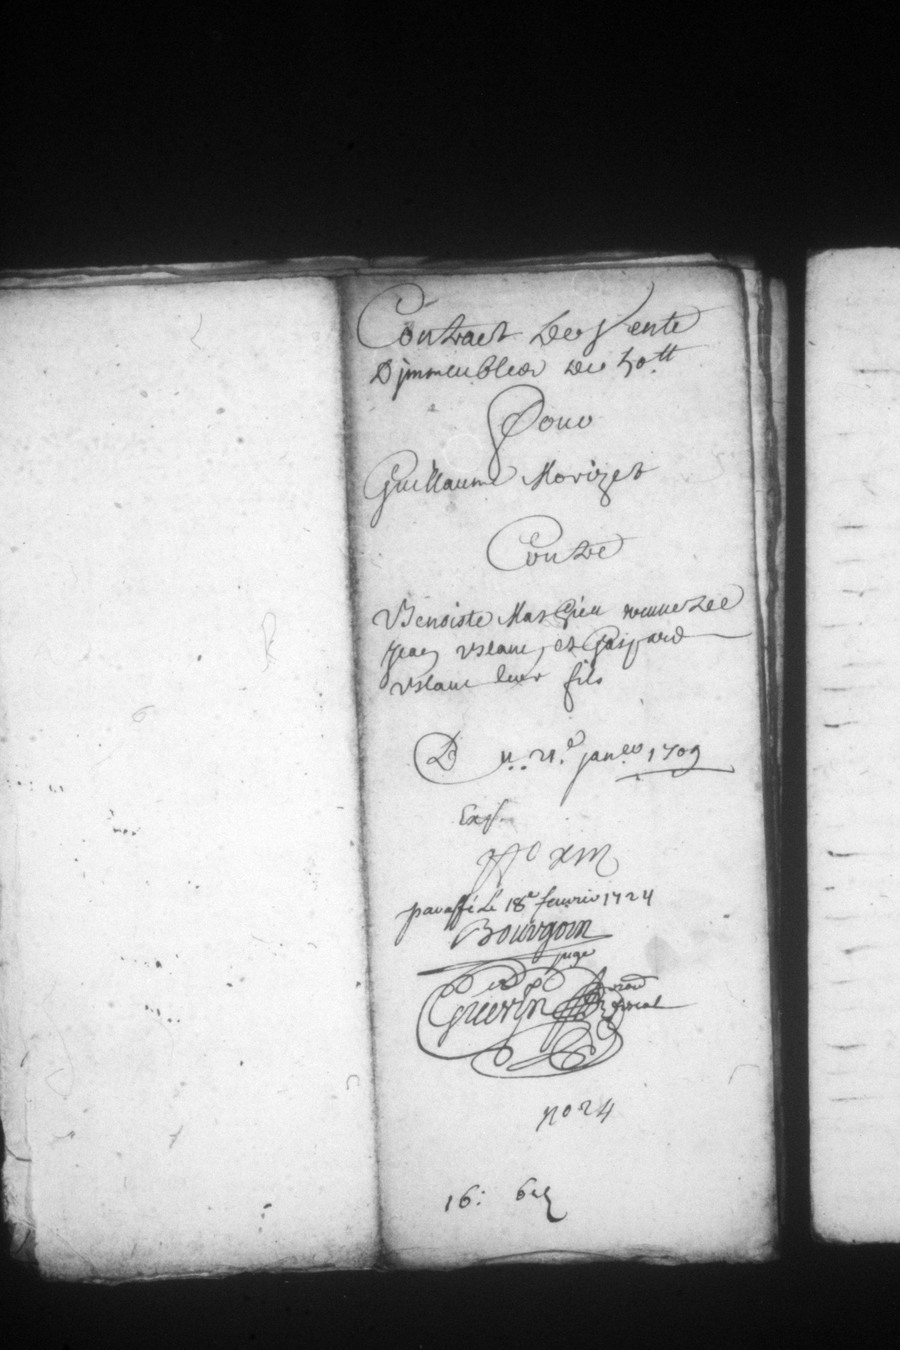 Contract De Vente
D'jmmeubles De 50.tt
Pour
Guillaume Morizet
Contre
Benoiste Mathieu veuve de
Jean et Gaspard
leur fils
D 21.e jan.er 1709
Exp.
paraffé Le 18e feuvrier 1724
Bourgoin
juge
Guerin
fiscal
no 24
16: